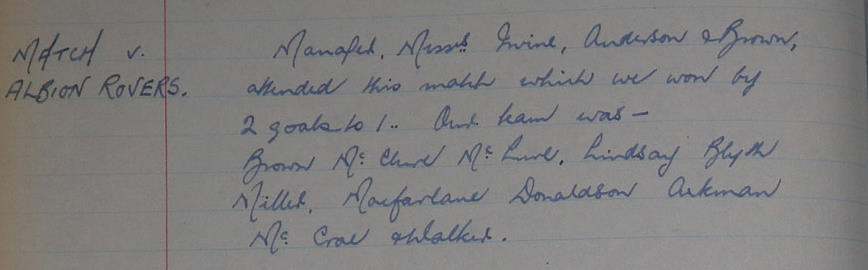 MATCH v.
ALBION ROVERS.
Manager, Messrs Irvine, Anderson & Brown,
attended this match which we won by
2 goals to 1.. Our team was —
Brown Mc Clure Mc Lure, Lindsay Blyth
Miller, Macfarlane Donaldson Aikman
Mc Crae & Walker.